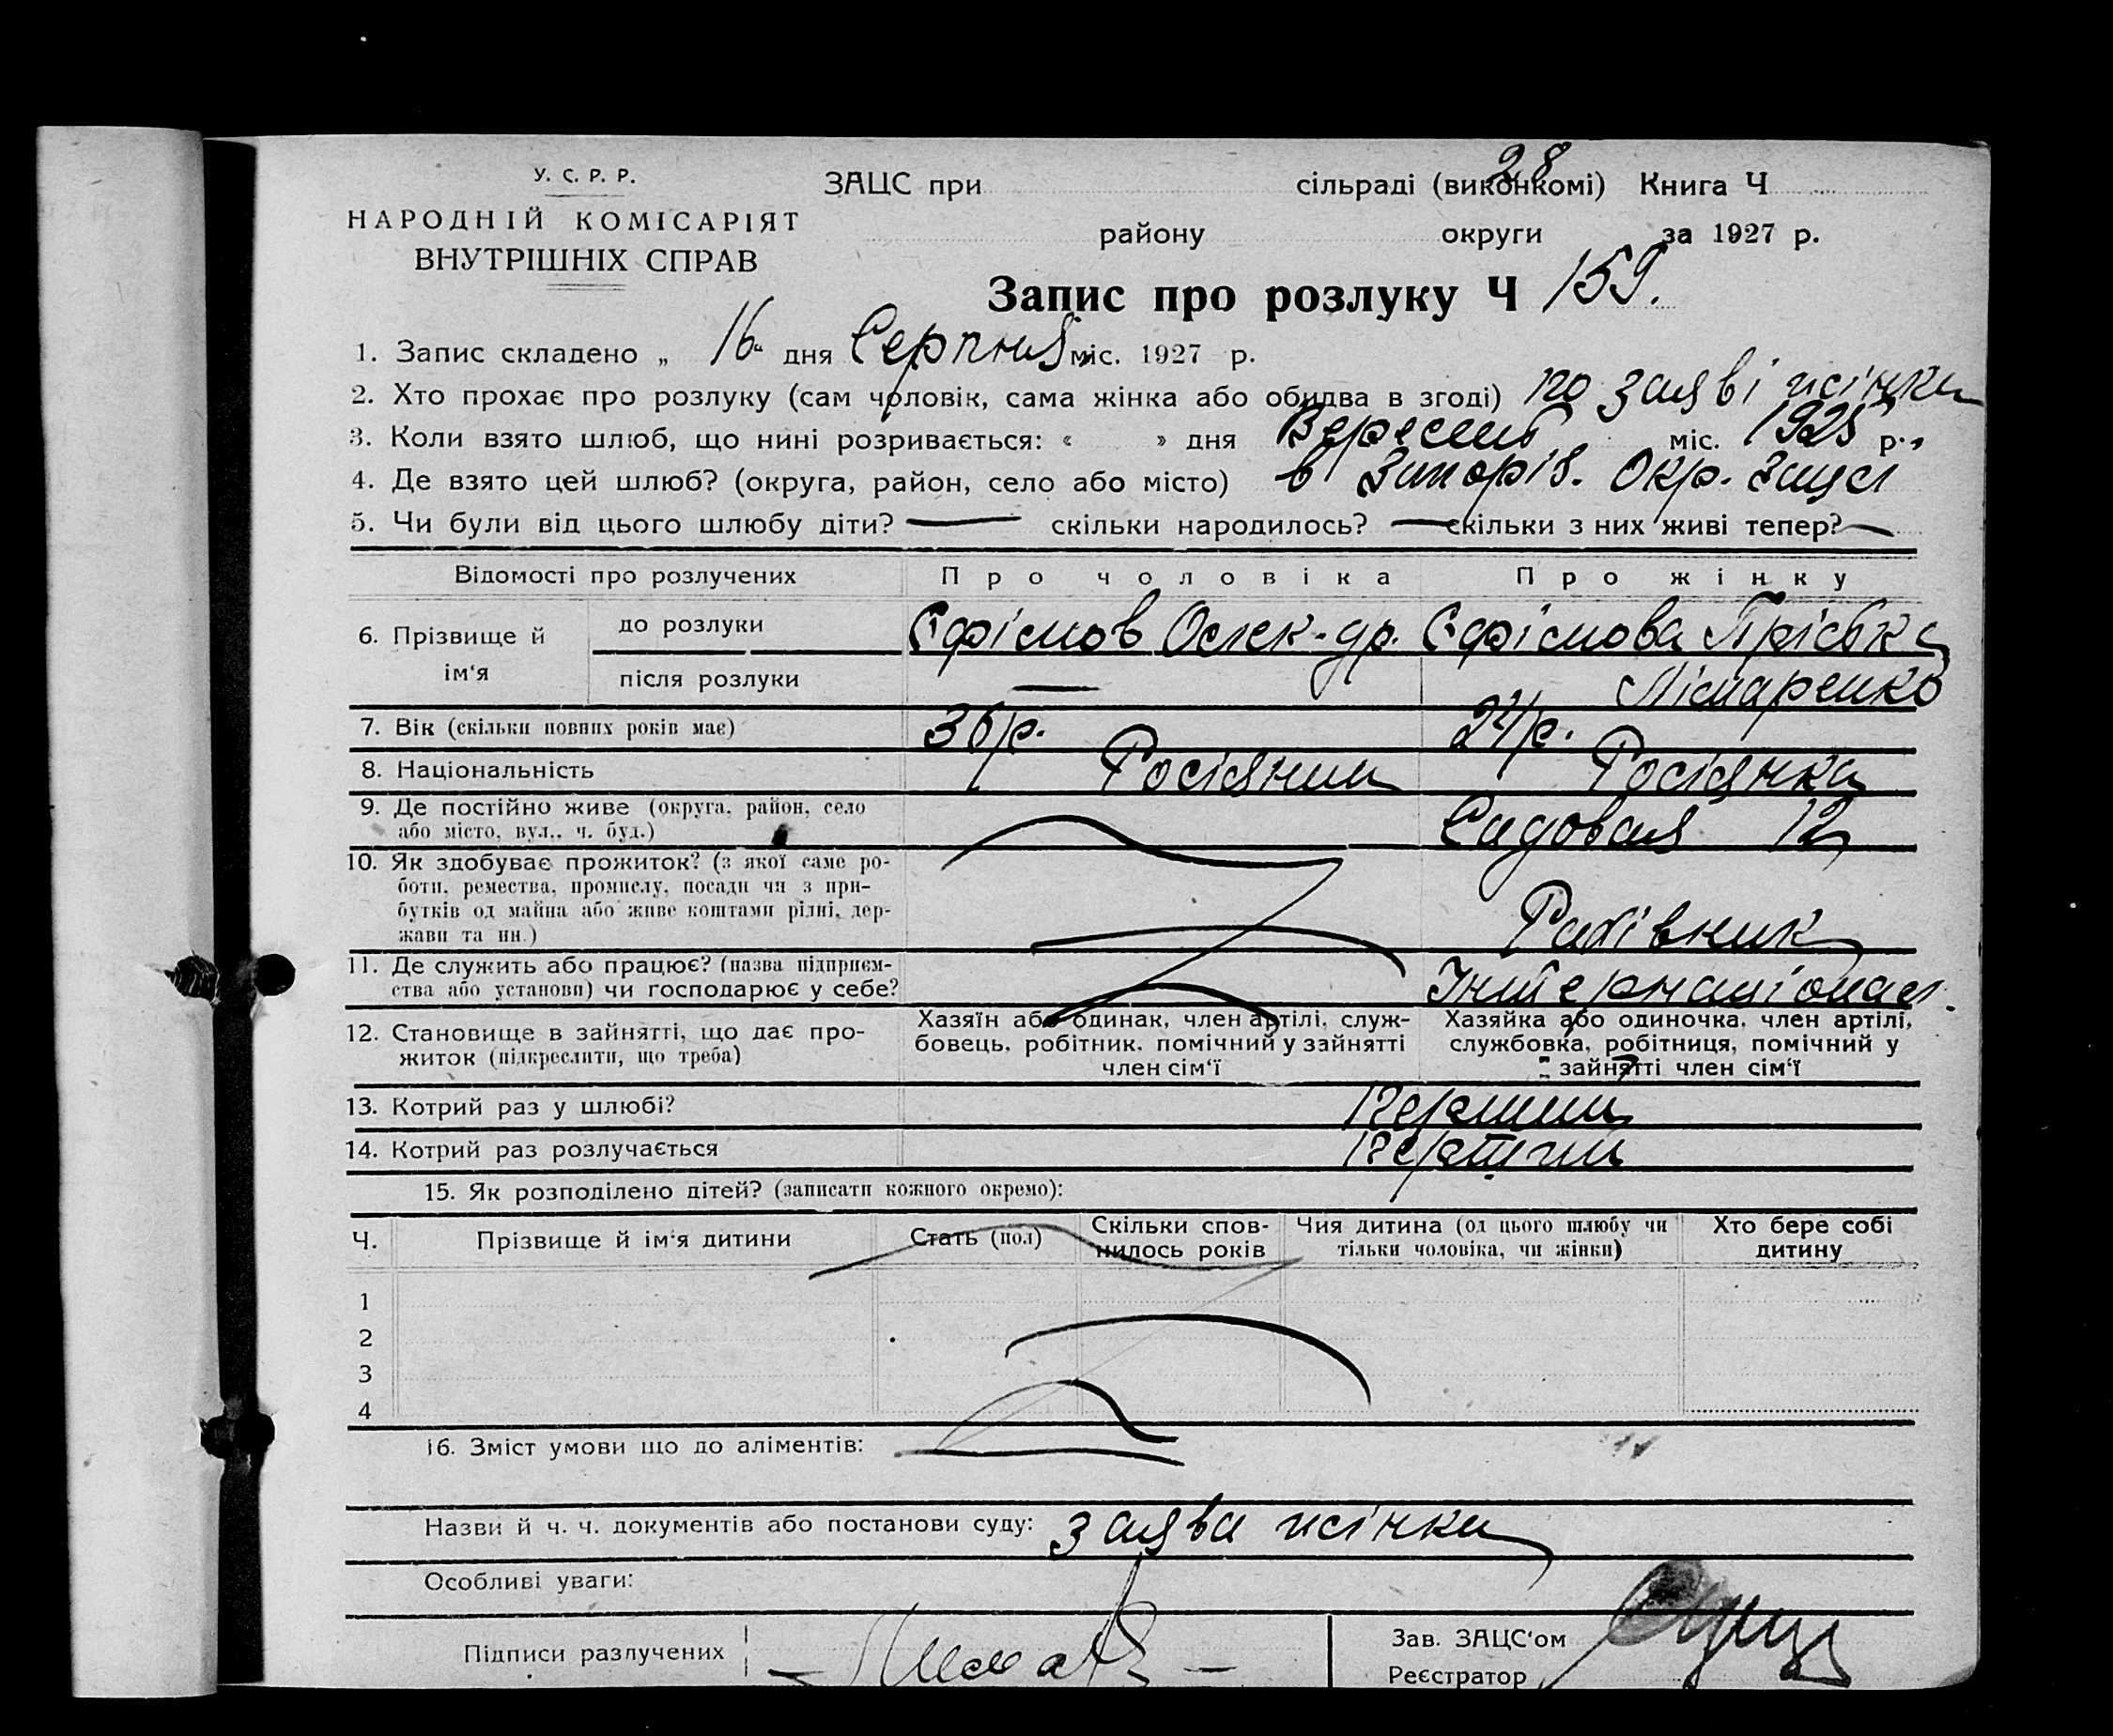 28
У. С. Р. Р.
НАРОДНІЙ КОМІСАРІЯТ
ВНУТРІШНІХ СПРАВ
ЗАЦС при сільраді (виконкомі) Книга Ч
району округи за 1927 р.
Запис про розлуку Ч 159.
1. Запис складено „ 16 “ дня Серпня міс. 1927 р.
2. Хто прохає про розлуку (сам чоловік, сама жінка або обидва в згоді) по заяві жінки
3. Коли взято шлюб, що нині розривається: « » дня Вересень міс. 1925 р.,
4. Де взято цей шлюб? (округа, район, село або місто) в Запоріз. Окр. Зацсі
5. Чи були від цього шлюбу діти? — скільки народилось? — скільки з них живі тепер? —
Відомості про розлучених Про чоловіка Про жінку
6. Прізвище й ім‘я
до розлуки Єфімов Олек-др. Єфімова Пріська
після розлуки —
7. Вік (скільки повних років має) 36 р. 24 р.
8. Національність Росіянин Росіянка
9. Де постійно живе (округа, район, село
або місто, вул., ч. буд.) Садовая 12
10. Як здобуває прожиток? (з якої саме ро-
боти, ремества, промислу, посади чи з при-
бутків од майна або живе коштами рідні, дер-
жави та ин.) Рахівник
11. Де служить або працює? (назва підприєм-
ства або установи) чи господарює у себе? Інтернаціонал.
12. Становище в зайнятті, що дає про-
житок (підкреслити, що треба)
Хазяїн або одинак, член артілі, служ-
бовець, робітник, помічний у зайнятті
член сім‘ї
Хазяйка або одиночка, член артілі,
службовка, робітниця, помічний у
зайнятті член сім‘ї
13. Котрий раз у шлюбі? Перший
14. Котрий раз розлучається Перший
15. Як розподілено дітей? (записати кожного окремо):
Ч. Прізвище й ім‘я дитини Стать (пол) Скільки спов-
нилось років Чия дитина (од цього шлюбу чи
тільки чоловіка, чи жінки) Хто бере собі
дитину
1
2
3
4
16. Зміст умови що до аліментів:
Назви й ч. ч. документів або постанови суду: заява жінки
Особливі уваги:
Підписи разлучених
Зав. ЗАЦС‘ом
Реєстратор